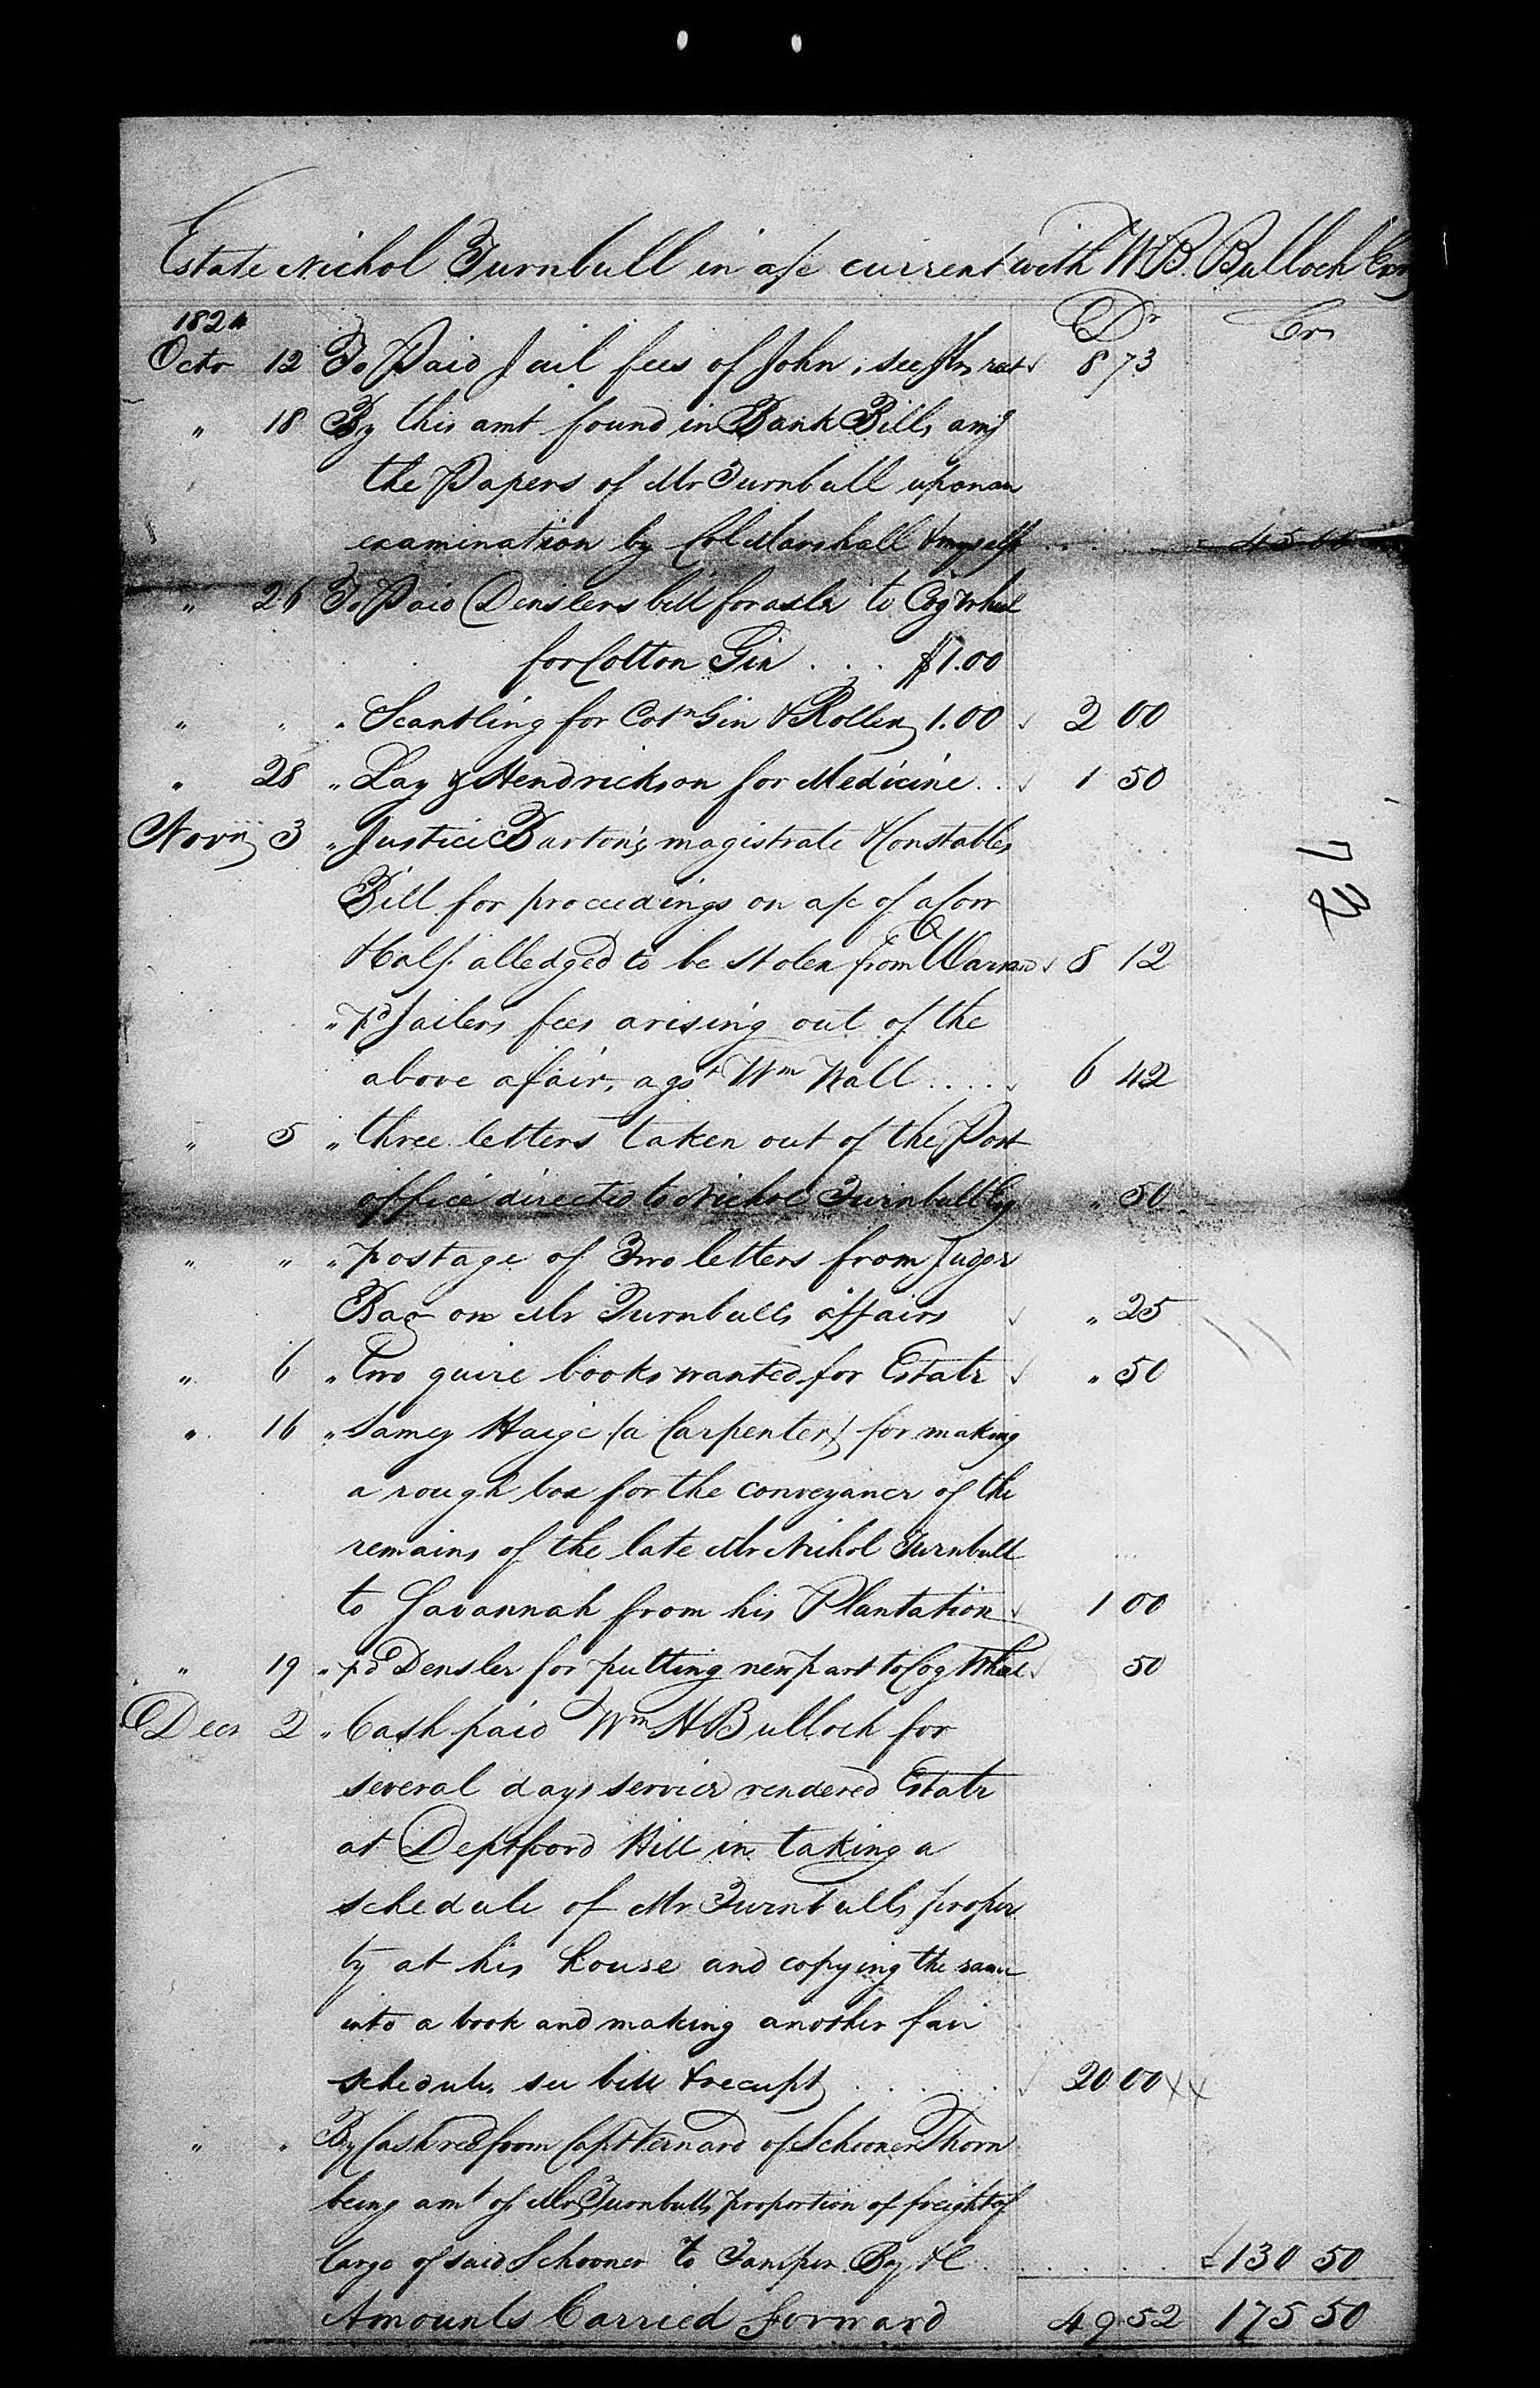 Estate Nichol Turnbull in a/c current with W.B. Bulloch Exor
1824 Dr Cr
Octr 12 To Paid Jail fees of John, see rect 8 73
" 18 By this amt found in Bank Bills amg
the Papers of Mr Turnbull upon an
examination by Col Marshall & myself . . . . 45 00
" 26 To Paid Denslers bill for axle to Cog Wheel
for Cotton Gin . . . $1.00
" " " Scantling for Cotn Gin & Rollers 1.00 2 00
" 28 " Lay & Hendrickson for Medicine . . 1 50
Novr 3 " Justice Barton's magistrate & Constables
Bill for proceedings on a/c of a Cow
& Calf alledged to be stolen from Warran 8 12
" pd Jailers fees arising out of the
above afair, agst Wm Wall . . . . 6 42
" 5 " three letters taken out of the Post
office directed to Nichol Turnbull Esq " 50
" " " postage of Two letters from Judge
on Mr Turnbulls affairs " 25
" 6 " Two quire books wanted for Estate " 50
" 16 " James Haige (a Carpenter) for making
a rough box for the conveyance of the
remains of the late Mr Nichol Turnbull
to Savannah from his Plantation 1 00
" 19 " pd Densler for putting new part to Cog Wheel 50
Decr 2 " Cash paid Wm H Bulloch for
several days service rendered Estate
at Deptford Hill in taking a
schedule of Mr Turnbulls proper
ty at his house and copying the same
into a book and making another fair
schedule, see bill & receipt . . . . . . 20 00 xx
" " By Cash recd from Capt Vernard of Schooner Thorn
being amt of Mr Turnbulls proportion of freight of
Cargo of said Schooner to Tamper Bay &c . . . . . . 130 50
Amounts Carried forward 49 52 175 50
72